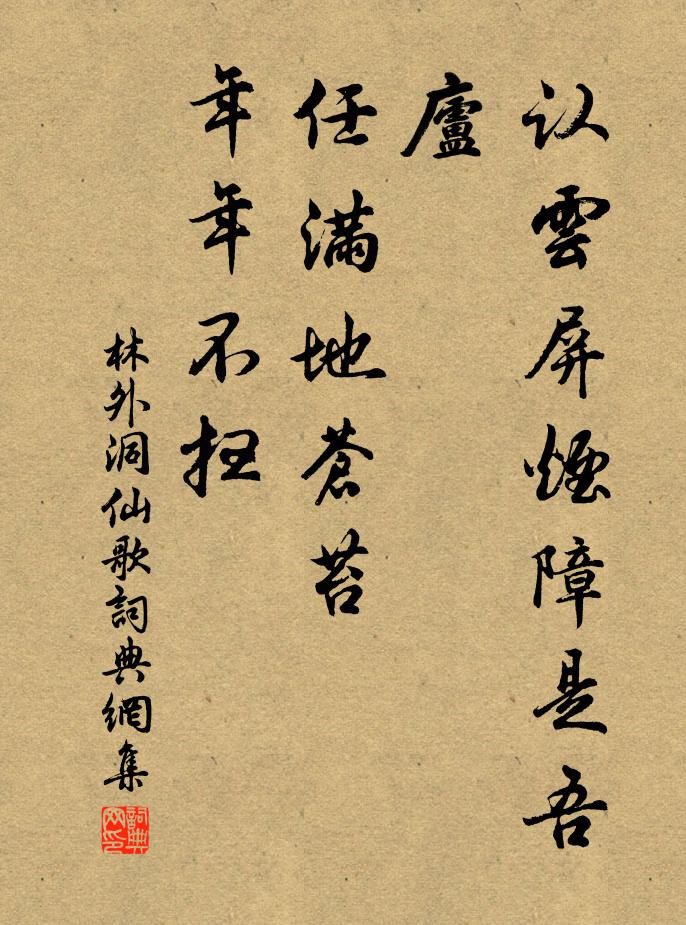 认雲屏煙障是吾
廬
任滿地蒼苔
年年不扫
林外洞仙歌詞典網集
詞典
网印